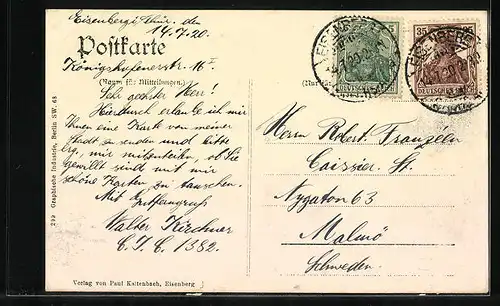 Eisenberg i. Thür. den
14.7.20.
Postkarte
Königshofenerstr. 16 I.
(Raum für Mitteilungen.)
Sehr geehrter Herr!
Hierdurch erlaube ich mir
Ihnen eine Karte von meiner
Stadt zu senden und bitte
Sie, mir mitzuteilen, ob Sie
gewillt sind mit mir
schöne Karten zu tauschen.
Mit
Walter Kirchner
C.T.C. 1382.
299 Graphische Industrie, Berlin SW. 68
Verlag von Paul Kaltenbach, Eisenberg
5
35
EISENBERG
DEUTSCHES
DEUTSCHES
Herrn Robert Franzélin
Caissier. St.
Nygatan 63
Malmö
Schweden.